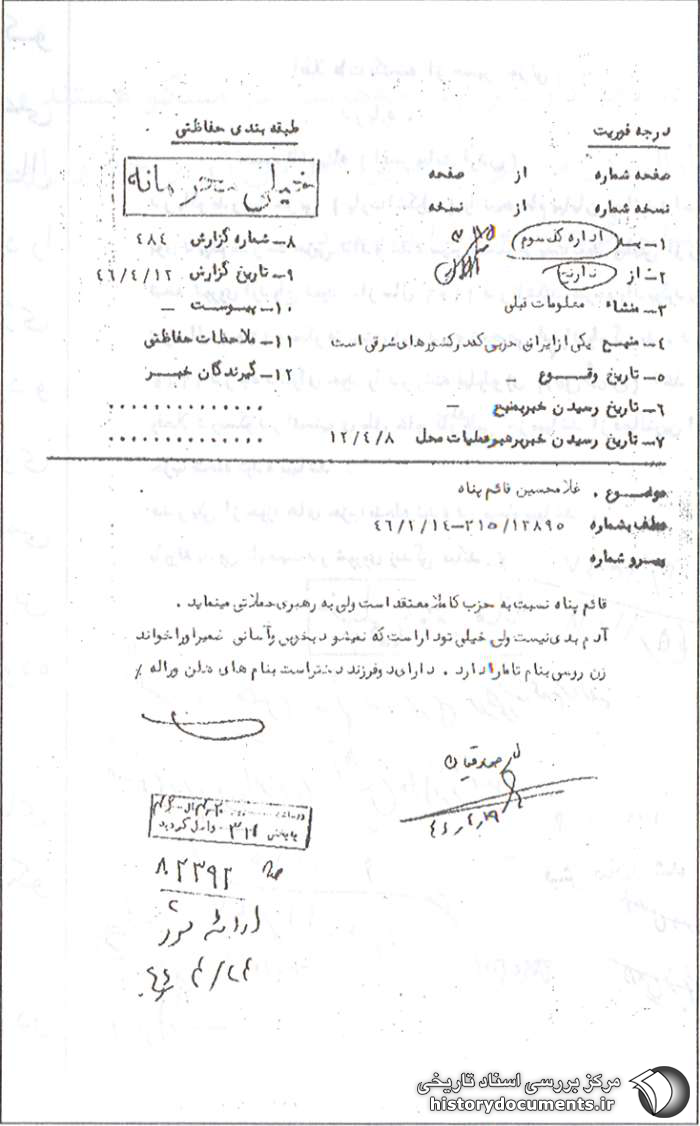 درجه فوریت
طبقه بندی حفاظتی
خیلی محرمانه
صفحه شماره از صفحه
نسخه شماره از نسخه
۱- به اداره کل سوم ۳۱۵
۲- از
۳- منشاء معلومات قبلی
۴- منبع یکی از ایرانی حزبی که در کشورهای شرقی است
۵- تاریخ وقوع -
۶- تاریخ رسیدن خبر به منبع -
۷- تاریخ رسیدن خبر به رهبر عملیات محل ۱۲/۴/۸
۸- شماره گزارش ۴۸۴
۹- تاریخ گزارش ۴۶/۴/۱۲
۱۰- پیوست -
۱۱- ملاحظات حفاظتی
۱۲- گیرندگان خبر
موضوع . غلامحسین قائم پناه
عطف بشماره ۳۱۵/۱۲۸۹۵-۴۶/۲/۱۴
پیرو شماره
قائم پناه نسبت به حزب کاملا معتقد است ولی به رهبری حملاتی مینماید .
آدم بدی نیست ولی خیلی تودار است که نمیشود بخوبی و آسانی ضمیر او را خواند
زن روسی بنام تامارا دارد . دارای دو فرزند دختر است بنام های هلن و راله ٪
صدقیان
۸۲۳۹۲
مرکز بررسی اسناد تاریخی
historydocuments.ir